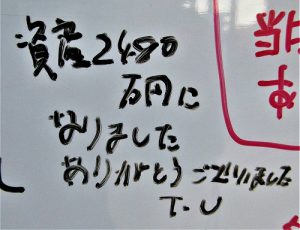 資産2480
万円に
なりました
ありがとうございました
T.U
当
す